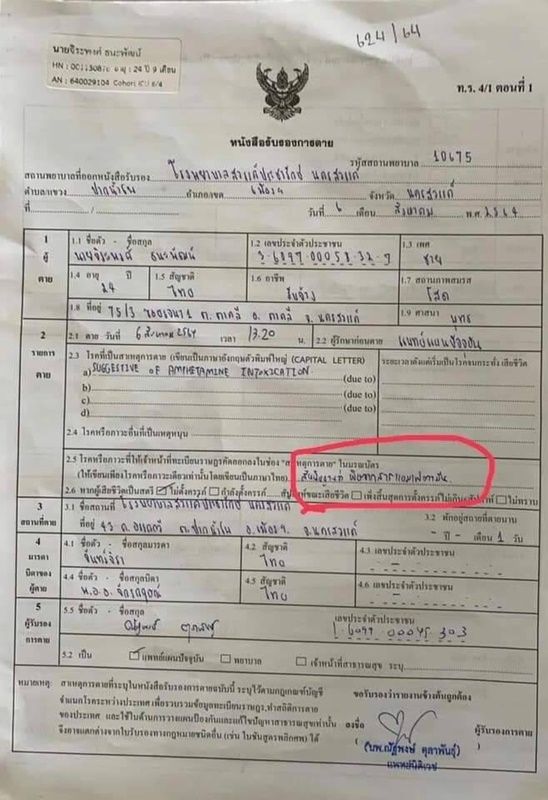 624/64
นายจิระพงศ์ ธนะพัฒน์
HN : 00113087 อายุ : 24 ปี 9 เดือน
AN : 640029104 Cohort ICU 6/4
ท.ร. 4/1 ตอนที่ 1
หนังสือรับรองการตาย
รหัสสถานพยาบาล 10675
สถานพยาบาลที่ออกหนังสือรับรอง โรงพยาบาลสวรรค์ประชารักษ์ นครสวรรค์
ตำบล/แขวง ปากน้ำโพ อำเภอ/เขต เมืองฯ จังหวัด นครสวรรค์
ที่ / วันที่ 6 เดือน สิงหาคม พ.ศ. 2564
1 ผู้ตาย
1.1 ชื่อตัว - ชื่อสกุล นายจิระพงศ์ ธนะพัฒน์
1.2 เลขประจำตัวประชาชน
1.3 เพศ ชาย
1.4 อายุ 24 ปี
1.5 สัญชาติ ไทย
1.6 อาชีพ รับจ้าง
1.7 สถานภาพสมรส โสด
1.8 ที่อยู่ 75/3 ต. ตาคลี อ. ตาคลี จ. นครสวรรค์
1.9 ศาสนา พุทธ
2 รายการตาย
2.1 ตาย วันที่ 6 สิงหาคม 2564 เวลา 13.20 น.
2.2 ผู้รักษาก่อนตาย แพทย์แผนปัจจุบัน
2.3 โรคที่เป็นสาเหตุการตาย (เขียนเป็นภาษาอังกฤษตัวพิมพ์ใหญ่ (CAPITAL LETTER)
ระยะเวลาตั้งแต่เริ่มเป็นโรคจนกระทั่งเสียชีวิต
a) SUGGESTIVE OF AMPHETAMINE INTOXICATION (due to)
b) (due to)
c) (due to)
d)
2.4 โรคหรือภาวะอื่นที่เป็นเหตุหนุน
2.5 โรคหรือภาวะที่ให้เจ้าหน้าที่ทะเบียนราษฎรคัดลอกลงในช่อง "สาเหตุการตาย" ในมรณบัตร
(ให้เขียนเพียงโรคหรือภาวะเดียวเท่านั้นโดยเขียนเป็นภาษาไทย) สันนิษฐานว่า พิษจากสารแอมเฟตามีน
2.6 หากผู้เสียชีวิตเป็นสตรี ไม่ตั้งครรภ์ กำลังตั้งครรภ์ สัปดาห์ขณะเสียชีวิต เพิ่งสิ้นสุดการตั้งครรภ์ไม่เกิน สัปดาห์ ไม่ทราบ
3 สถานที่ตาย
3.1 ชื่อสถานที่ โรงพยาบาลสวรรค์ประชารักษ์ นครสวรรค์
ที่อยู่ 43 ถ. อรรถกวี ต. ปากน้ำโพ อ. เมืองฯ จ. นครสวรรค์
3.2 พักอยู่สถานที่ตายนาน - ปี - เดือน 1 วัน
4 มารดา บิดาของผู้ตาย
4.1 ชื่อตัว - ชื่อสกุลมารดา จันทร์จิรา
4.2 สัญชาติ ไทย
4.3 เลขประจำตัวประชาชน
4.4 ชื่อตัว - ชื่อสกุลบิดา
4.5 สัญชาติ ไทย
4.6 เลขประจำตัวประชาชน
5 ผู้รับรองการตาย
5.5 ชื่อตัว - ชื่อสกุล ณัฐพงษ์ ตุลาพันธุ์
เลขประจำตัวประชาชน
5.2 เป็น แพทย์แผนปัจจุบัน พยาบาล เจ้าหน้าที่สาธารณสุข ระบุ
หมายเหตุ: สาเหตุการตายที่ระบุในหนังสือรับรองการตายฉบับนี้ ระบุไว้ตามกฎเกณฑ์บัญชี
จำแนกโรคระหว่างประเทศ เพื่อรวบรวมข้อมูลทะเบียนราษฎร,ทำสถิติการตาย
ของประเทศ และใช้ในด้านการวางแผนป้องกันและแก้ไขปัญหาสาธารณสุขเท่านั้น
จึงอาจแตกต่างจากใบรับรองทางกฎหมายชนิดอื่น (เช่น ใบชันสูตรพลิกศพ) ได้
ขอรับรองว่ารายงานข้างต้นถูกต้อง
ลงชื่อ ผู้รับรองการตาย
(นพ.ณัฐพงษ์ ตุลาพันธุ์)
แพทย์นิติเวช